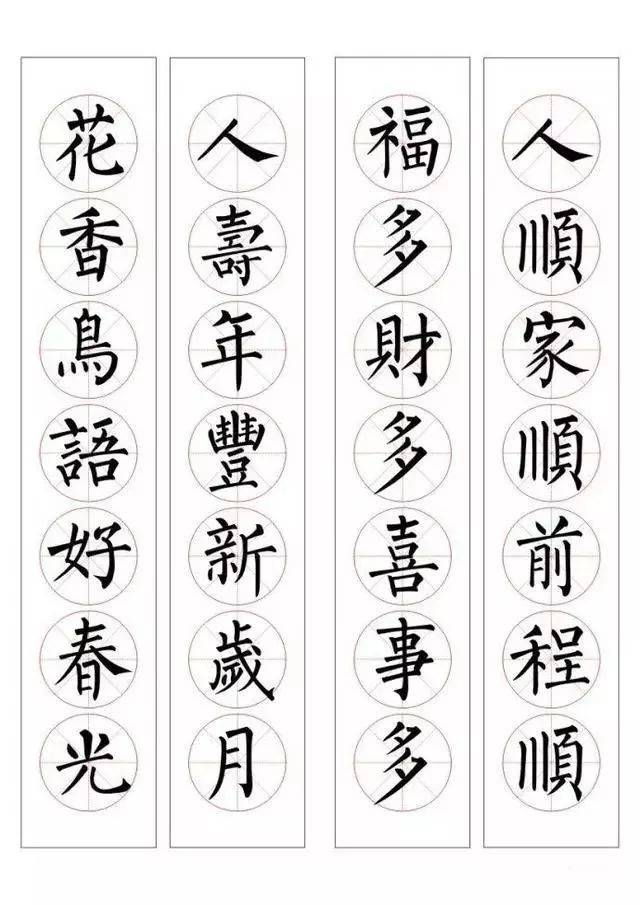 人順家順前程順
福多財多喜事多
人壽年豐新歲月
花香鳥語好春光